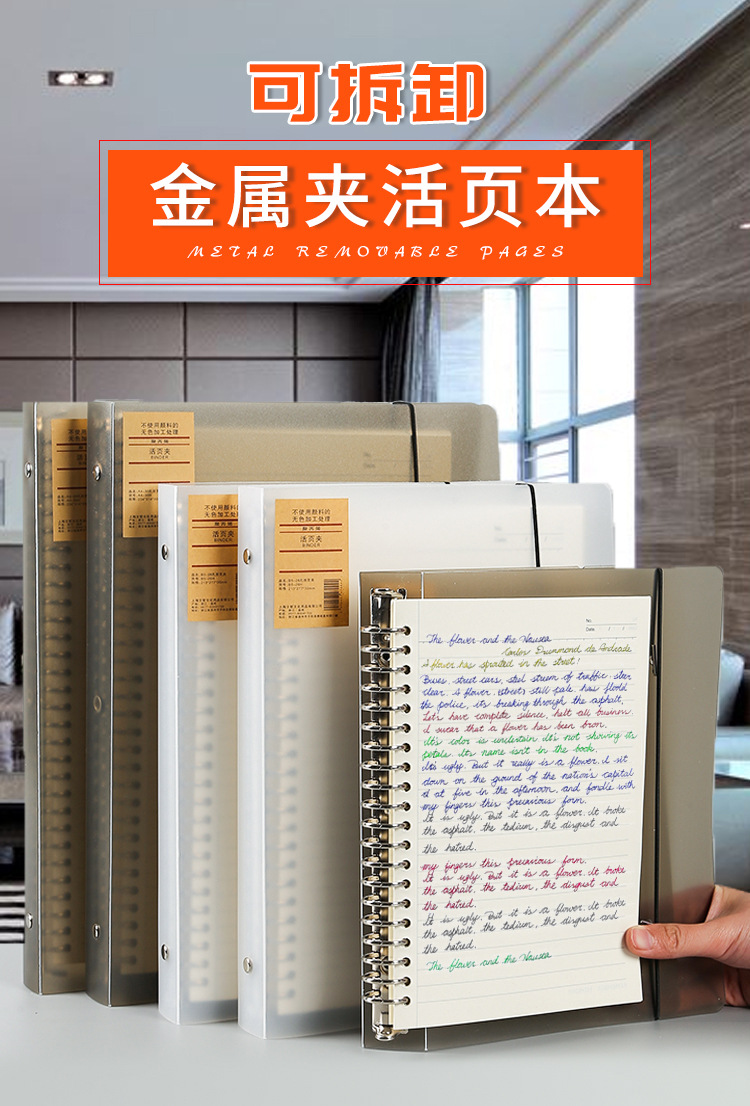 可拆卸
金属夹活页本
METAL REMOVABLE PAGES
不使用颜料的
无色加工处理
聚丙烯
活页夹
BINDER
不使用颜料的
无色加工处理
聚丙烯
活页夹
BINDER
不使用颜料的
无色加工处理
聚丙烯
活页夹
BINDER
No.
Date
The flower and the Nausea
Carlos Drummond de Andrade
A flower has sprouted in the street!
Buses, street cars, steel stream of traffic, steer
clear. A flower, (street) still pale, has floold
the police, it's breaking through the asphalt,
Let's have complete silence, halt all business.
I swear that a flower has been born.
It's color is uncertain It's not showing its
petals. It's name isn't in the book.
It's ugly. But it really is a flower. I sit
down on the ground of the nation's capital
at five in the afternoon, and fondle with
my fingers this precarious form.
It is ugly. But it is a flower. It broke
the asphalt, the tedium, the disgust and
the hatred.
my fingers this precarious form.
It is ugly. But it is a flower. It broke
the asphalt, the tedium, the disgust and
the hatred.
It is ugly. But it is a flower. It broke
the asphalt, the tedium, the disgust and
the hatred.
The flower and the Nausea